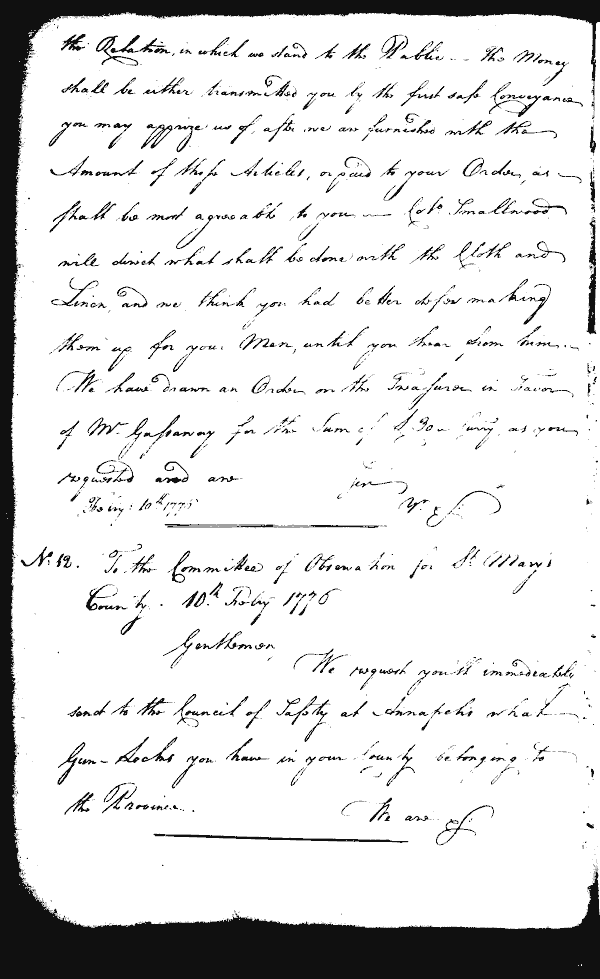 the Relation, in which we stand to the Public — The Money
shall be either transmitted you by the first safe Conveyance
you may apprize us of, after we are furnished with the
Amount of those Articles, or paid to your Order, as
shall be most agreeable to you — Colo. Smallwood
will direct what shall be done with the Cloth and
Linen, and we think you had better defer making
them up for your Men, until you hear from him.
We have drawn an Order on the Treasurer in Favor
of Mr. Gassaway for the Sum of Curry. as you
requested and are
Feb'ry: 10th 1776
No. 12. To the Committee of Observation for St. Mary's
County. 10th. Feb'ry 1776
Gentlemen,
We request you'll immediately
send to the Council of Safety at Annapolis what
Gun-Locks you have in your County belonging to
the Province.
We are &c.